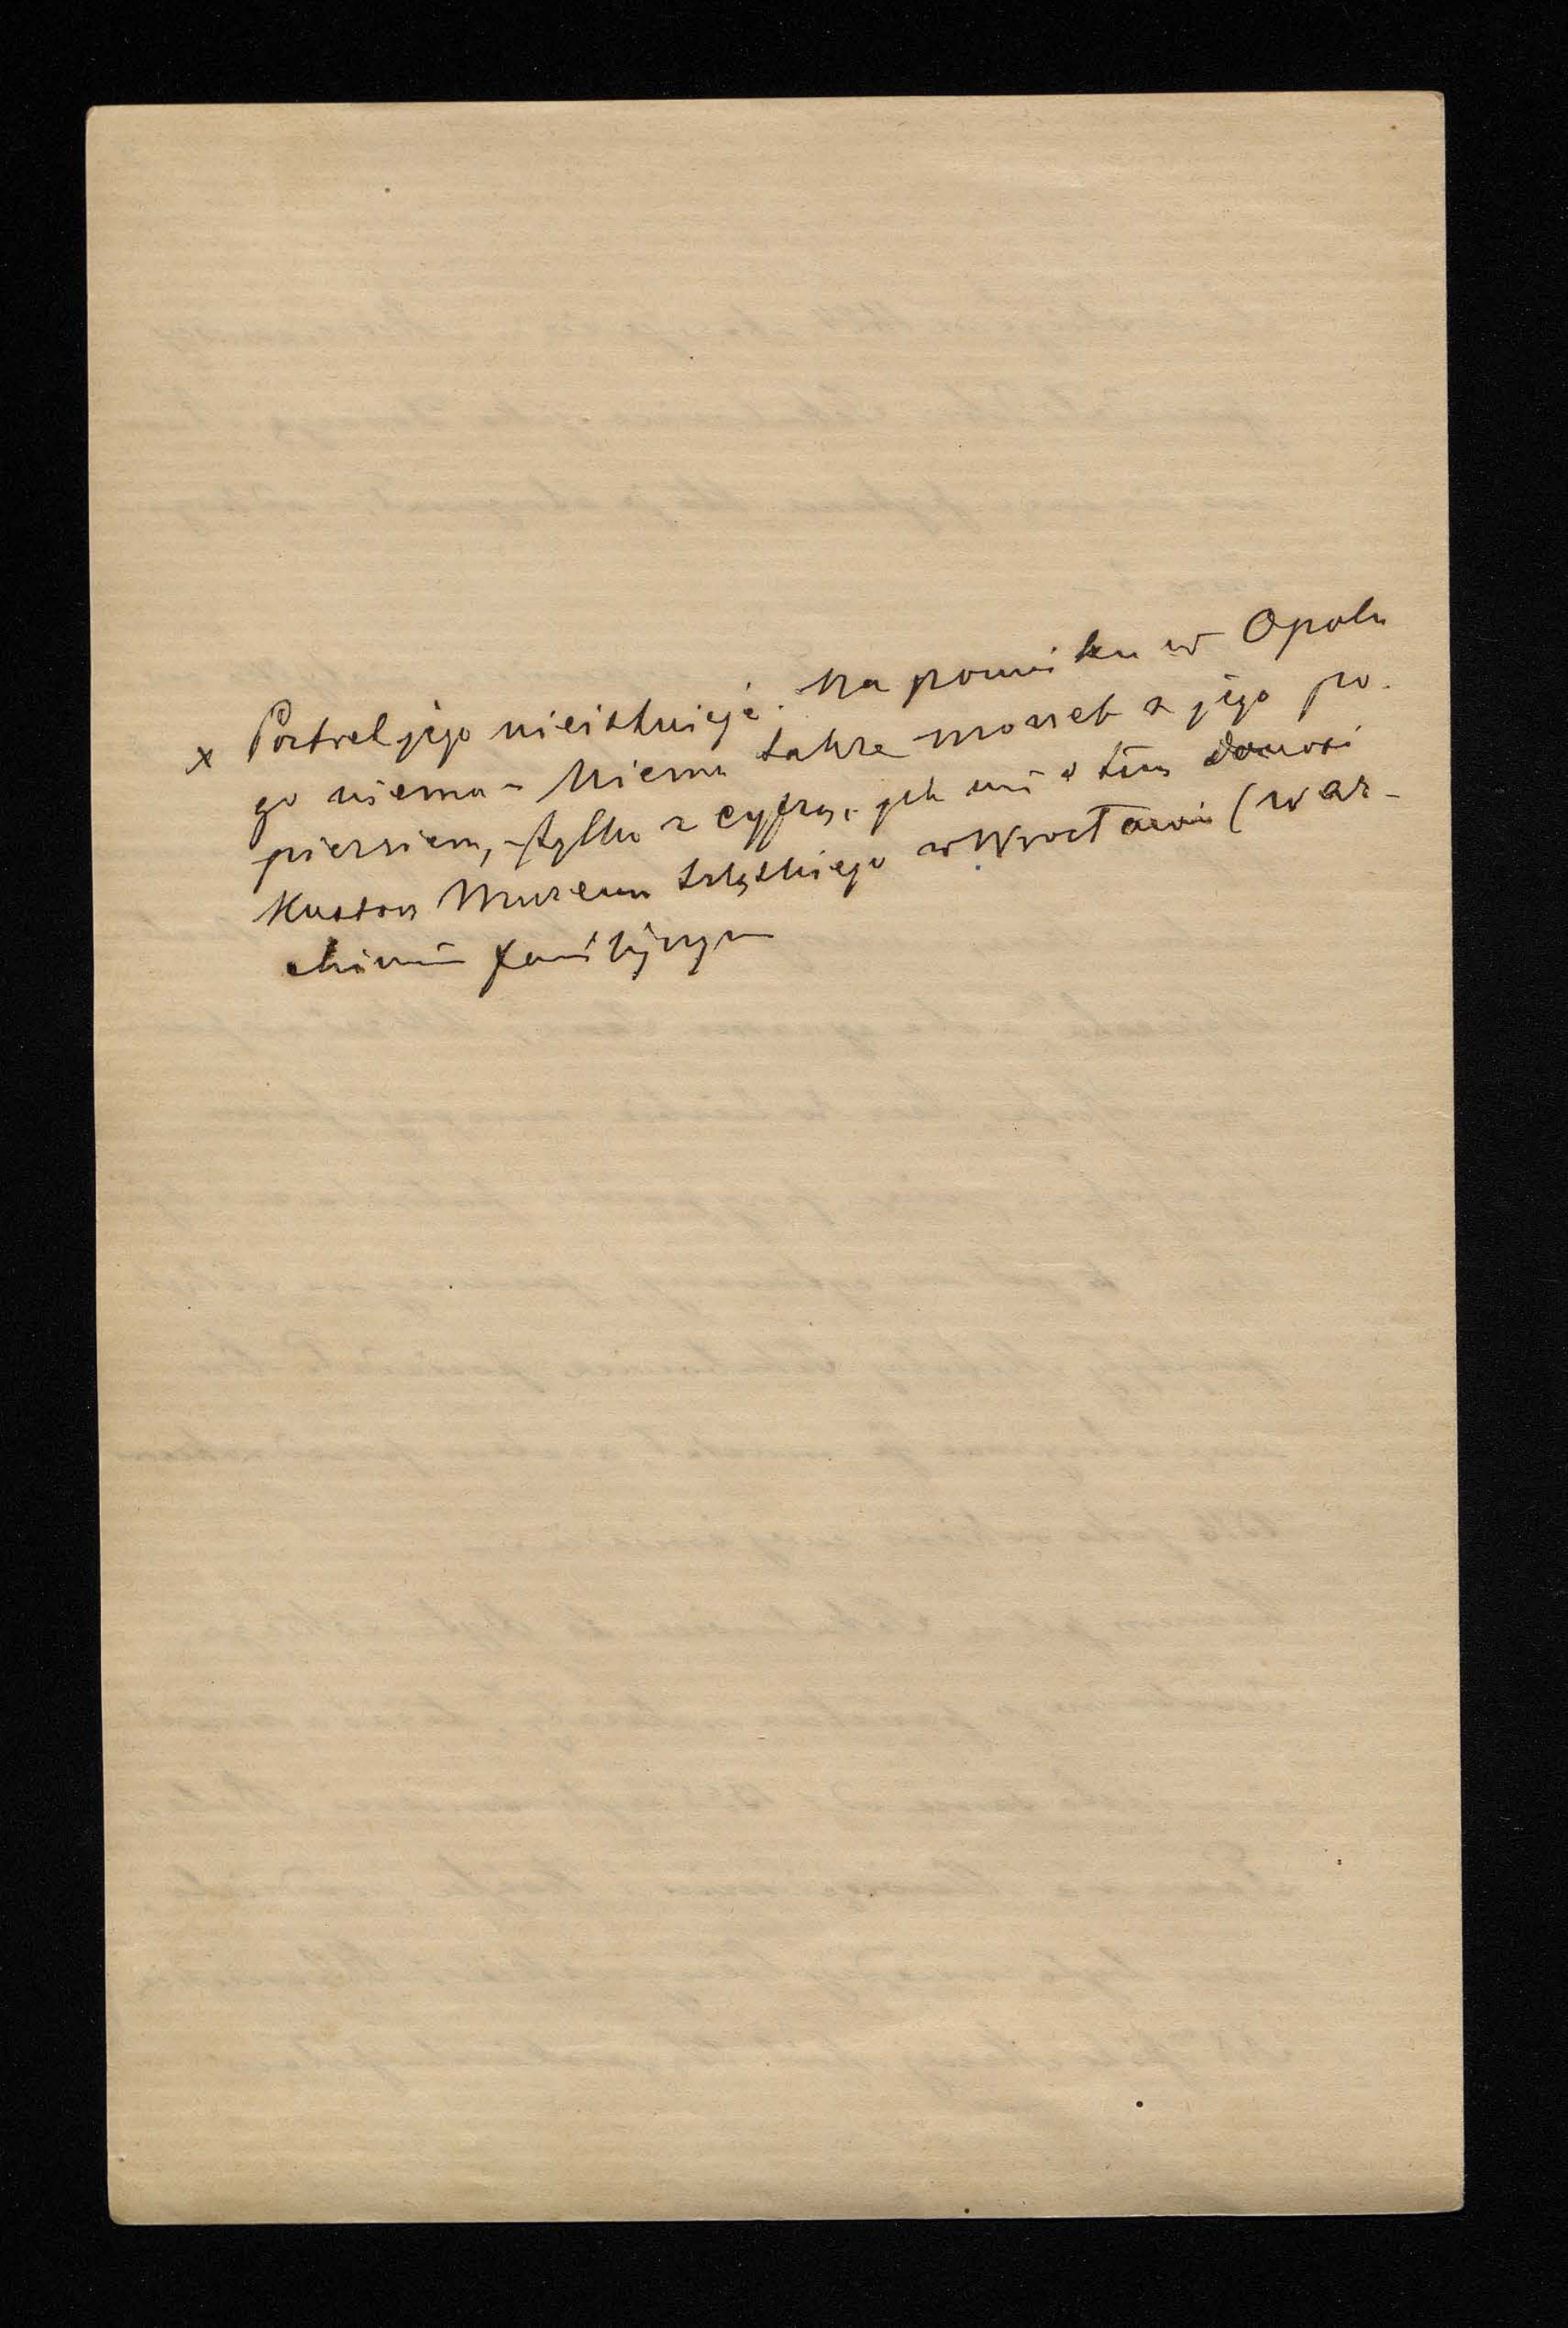 x Portret jego nieistnieje. Na pomniku w Opolu
go niema - Niema także monet z jego po-
piersiem, - tylko z cyfrą, jak mi o tem donosi
Kustos Muzeum szląskiego w Wrocławiu (w ar-
chiwum familijnym